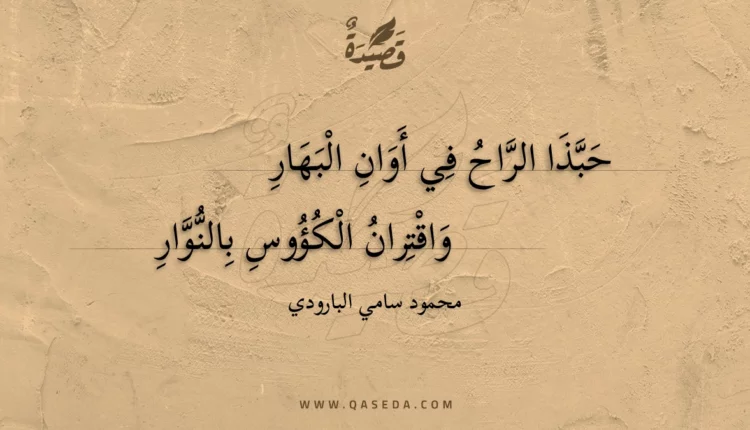 قَصِيدَةٌ
حَبَّذَا الرَّاحُ فِي أَوَانِ الْبَهَارِ
وَاقْتِرانُ الْكُؤُوسِ بِالنُّوَّارِ
محمود سامي البارودي
WWW.QASEDA.COM